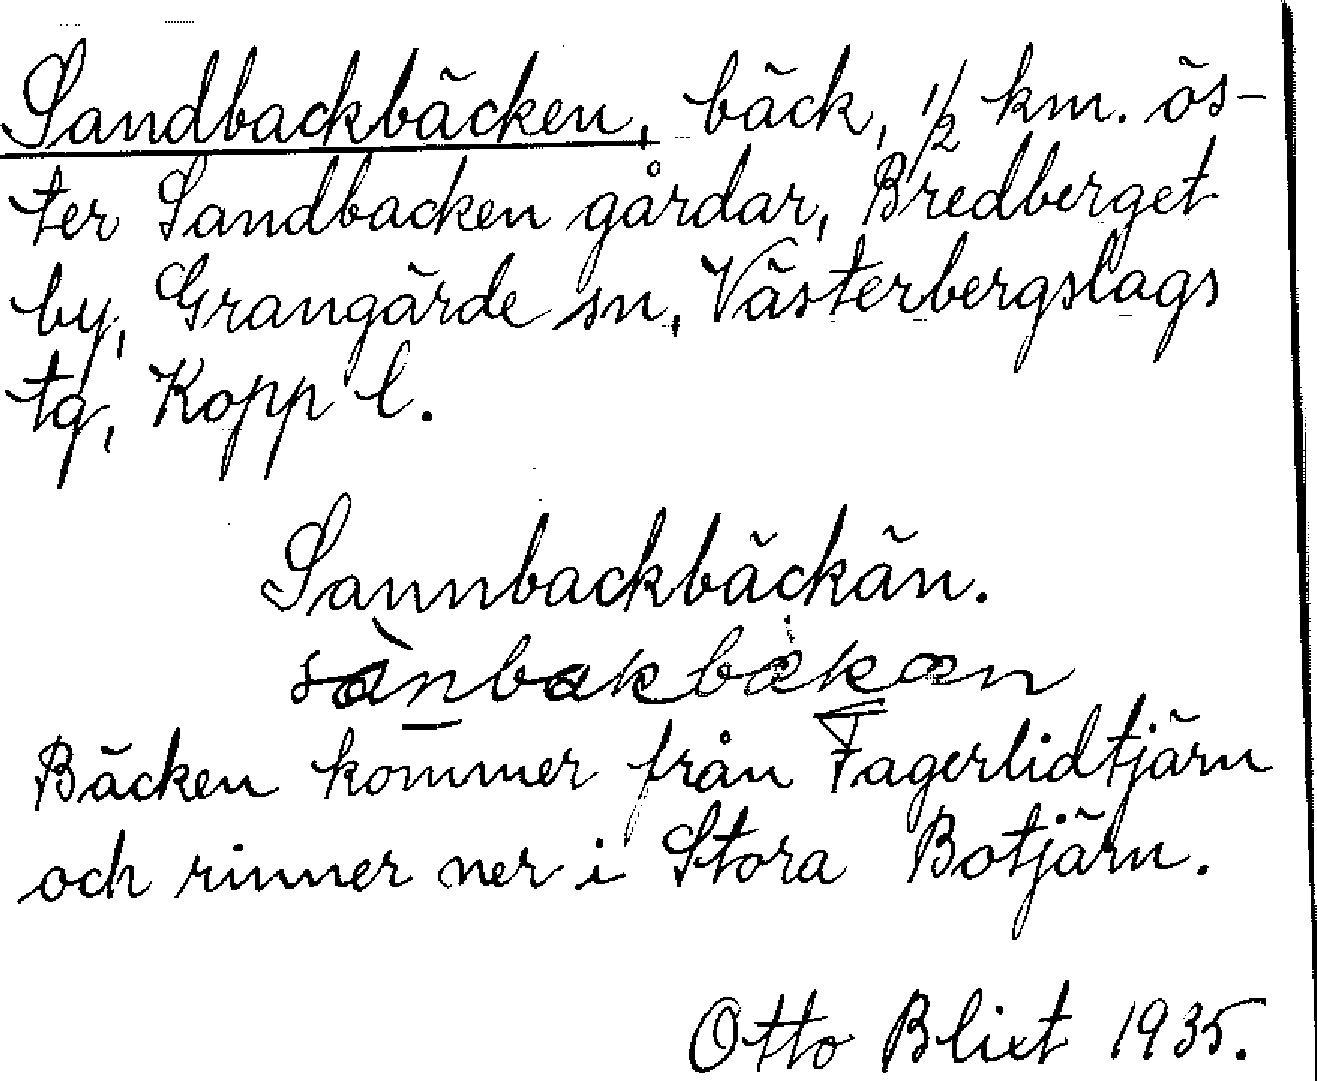 Sandbackbäcken, bäck, 1/2 km. ös-
ter Sandbacken gårdar, Bredberget
by, Grangärde sn, Västerbergslags
tg, Kopp l.
Sannbackbäckän.
sànbakbækæn
Bäcken kommer från Fagerlidtjärn
och rinner ner i Stora Botjärn.
Otto Blixt 1935.